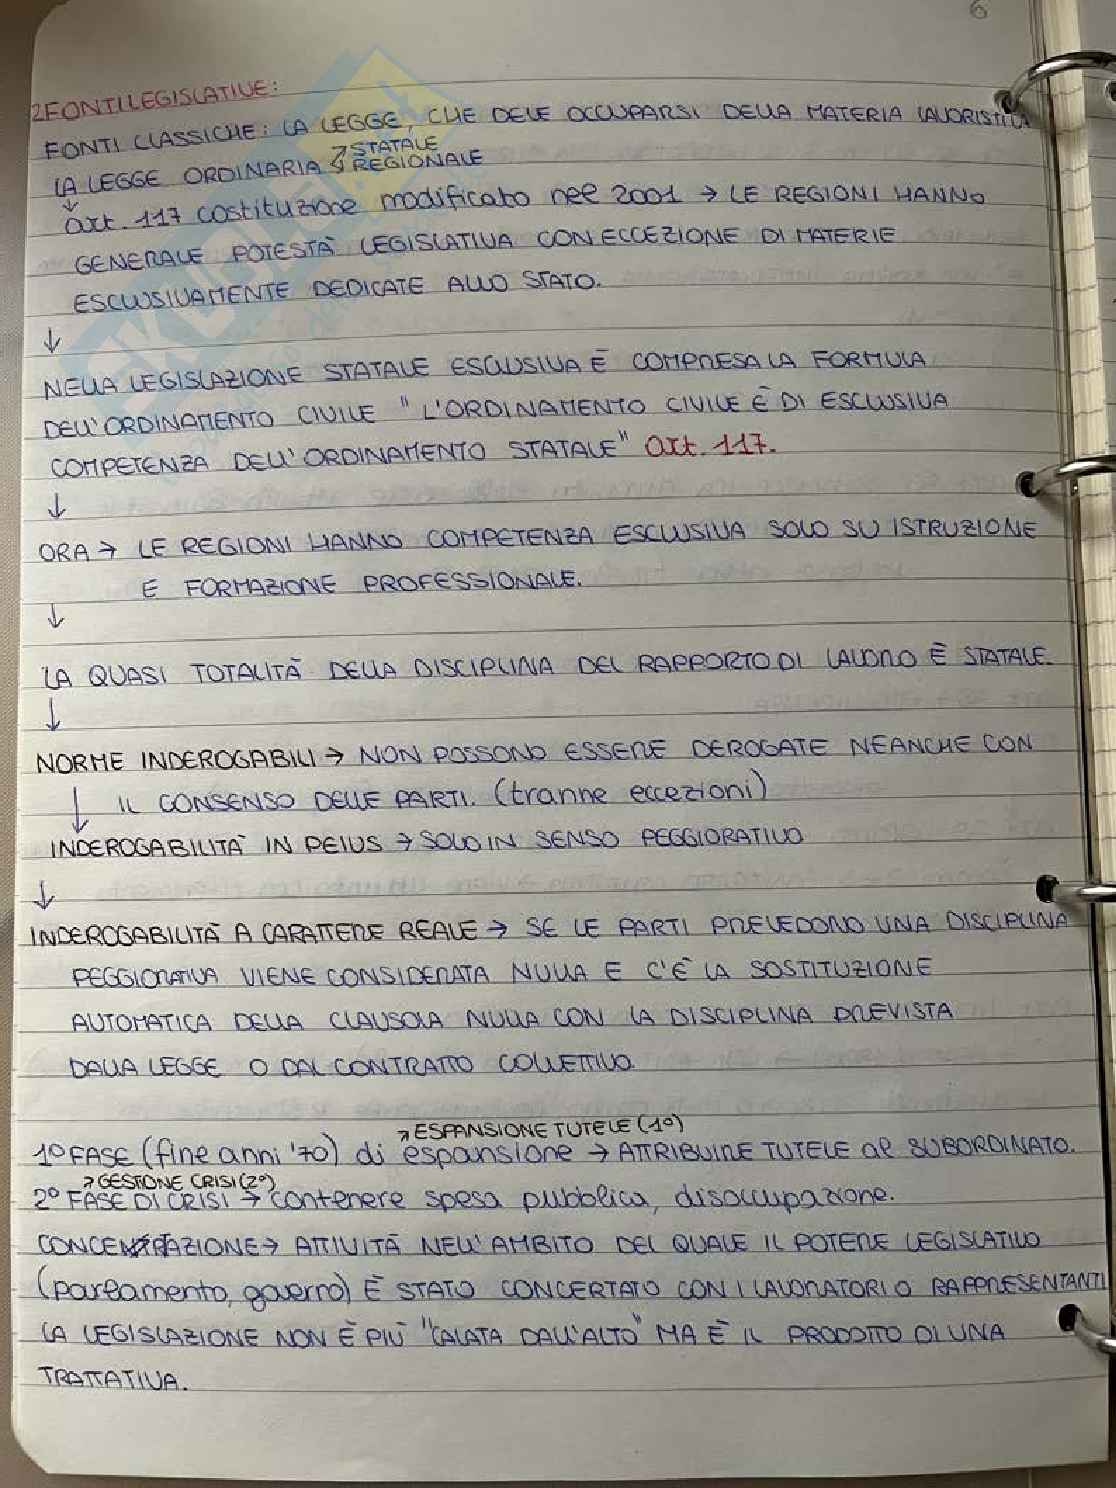 6
2 FONTI LEGISLATIVE:
FONTI CLASSICHE: LA LEGGE, CHE DEVE OCCUPARSI DELLA MATERIA LAVORISTICA
LA LEGGE ORDINARIA → STATALE
→ REGIONALE
↓
art. 117 costituzione modificato nel 2001 → LE REGIONI HANNO
GENERALE POTESTÀ LEGISLATIVA CON ECCEZIONE DI MATERIE
ESCLUSIVAMENTE DEDICATE ALLO STATO.
↓
NELLA LEGISLAZIONE STATALE ESCLUSIVA È COMPRESA LA FORMULA
DELL'ORDINAMENTO CIVILE "L'ORDINAMENTO CIVILE È DI ESCLUSIVA
COMPETENZA DELL'ORDINAMENTO STATALE" art. 117.
↓
ORA → LE REGIONI HANNO COMPETENZA ESCLUSIVA SOLO SU ISTRUZIONE
E FORMAZIONE PROFESSIONALE.
↓
LA QUASI TOTALITÀ DELLA DISCIPLINA DEL RAPPORTO DI LAVORO È STATALE.
↓
NORME INDEROGABILI → NON POSSONO ESSERE DEROGATE NEANCHE CON
↓ IL CONSENSO DELLE PARTI. (tranne eccezioni)
INDEROGABILITÀ IN PEIUS → SOLO IN SENSO PEGGIORATIVO
↓
INDEROGABILITÀ A CARATTERE REALE → SE LE PARTI PREVEDONO UNA DISCIPLINA
PEGGIORATIVA VIENE CONSIDERATA NULLA E C'È LA SOSTITUZIONE
AUTOMATICA DELLA CLAUSOLA NULLA CON LA DISCIPLINA PREVISTA
DALLA LEGGE O DAL CONTRATTO COLLETTIVO.
→ ESPANSIONE TUTELE (1°)
1° FASE (fine anni '70) di espansione → ATTRIBUIRE TUTELE al SUBORDINATO.
→ GESTIONE CRISI (2°)
2° FASE DI CRISI → contenere spesa pubblica, disoccupazione.
CONCERTAZIONE → ATTIVITÀ NELL'AMBITO DEL QUALE IL POTERE LEGISLATIVO
(parlamento, governo) È STATO CONCERTATO CON I LAVORATORI O RAPPRESENTANTI
LA LEGISLAZIONE NON È PIÙ "CALATA DALL'ALTO" MA È IL PRODOTTO DI UNA
TRATTATIVA.